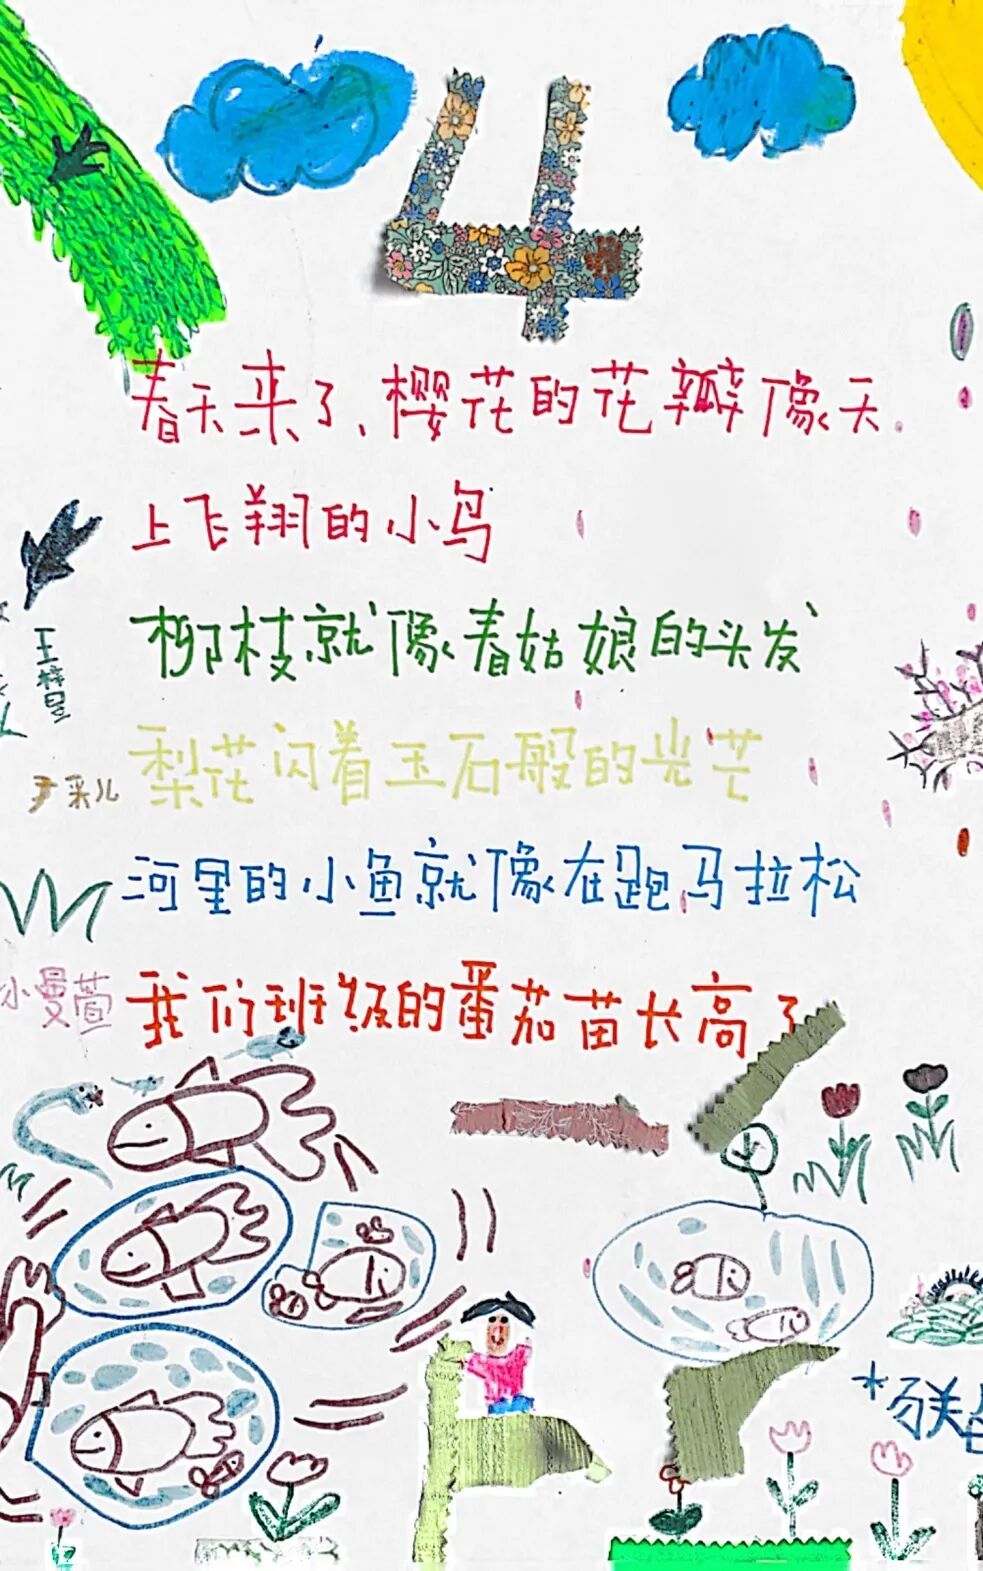 4
春天来了、樱花的花瓣像天
上飞翔的小鸟
柳枝就像春姑娘的头发
梨花闪着玉石般的光芒
尹采儿
河里的小鱼就像在跑马拉松
小曼萱
我们班级的番茄苗长高了